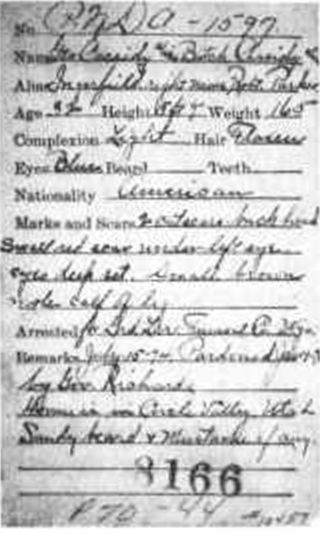 No. (PNDA) A-1597
Name Geo Cassidy alias Butch Cassidy
Alias Ingerfield. right name Robt. Parker
Age 32 Height 5 ft 9 Weight 165
Complexion Light Hair Flaxen
Eyes Blue Beard Teeth
Nationality American
Marks and Scars 2 cut scars back head
Small red scar under left eye
eyes deep set. Small brown
mole calf of leg
Arrested for Grd Lar. Fremont Co. Wyo.
Remarks July 15-94. Pardoned
by Gov. Richards
Home is in Circle Valley Utah
Sandy beard & Mustache if any
8166
P 70 - 44